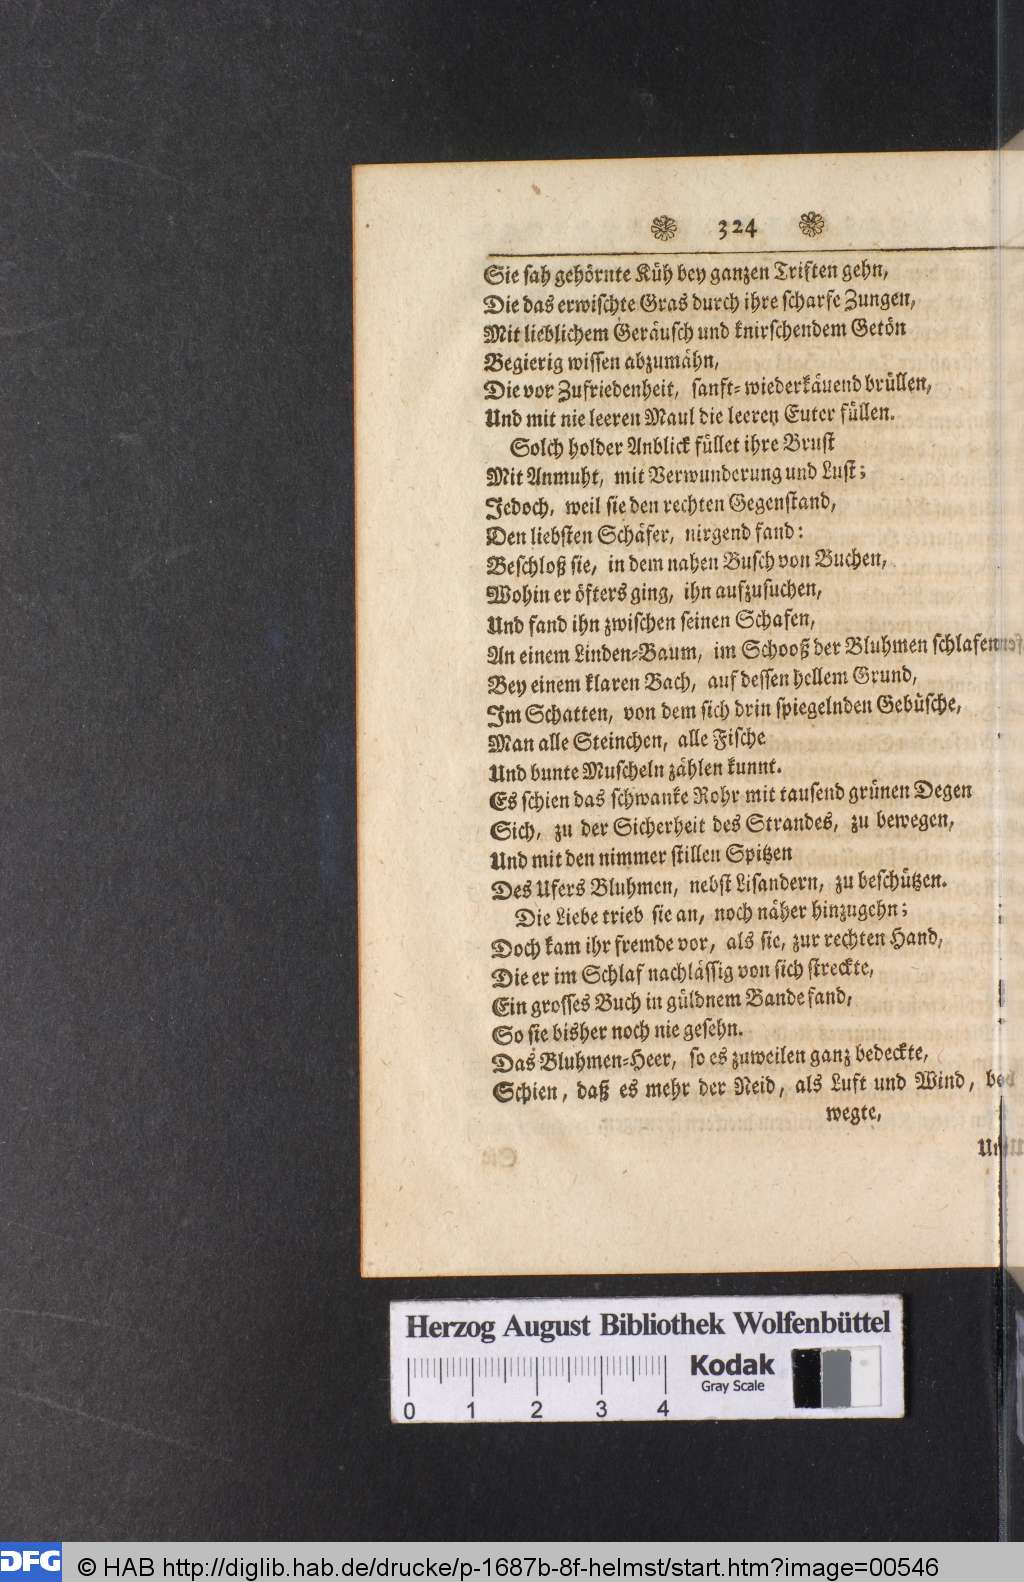 324
Sie sah gehörnte Küh bey ganzen Triften gehn,
Die das erwischte Gras durch ihre scharfe Zungen,
Mit lieblichem Geräusch und knirschendem Getön
Begierig wissen abzumähn,
Die vor Zufriedenheit, sanft-wiederkäuend brüllen,
Und mit nie leeren Maul die leeren Euter füllen.
Solch holder Anblick füllet ihre Brust
Mit Anmuht, mit Verwunderung und Lust;
Jedoch, weil sie den rechten Gegenstand,
Den liebsten Schäfer, nirgend fand:
Beschloß sie, in dem nahen Busch von Buchen,
Wohin er öfters ging, ihn aufzusuchen,
Und fand ihn zwischen seinen Schafen,
An einem Linden-Baum, im Schooß der Bluhmen schlafen
Bey einem klaren Bach, auf dessen hellem Grund,
Im Schatten, von dem sich drin spiegelnden Gebüsche,
Man alle Steinchen, alle Fische
Und bunte Muscheln zählen kunnt.
Es schien das schwanke Rohr mit tausend grünen Degen
Sich, zu der Sicherheit des Strandes, zu bewegen,
Und mit den nimmer stillen Spitzen
Des Ufers Bluhmen, nebst Lisandern, zu beschützen.
Die Liebe trieb sie an, noch näher hinzugehn;
Doch kam ihr fremde vor, als sie, zur rechten Hand,
Die er im Schlaf nachlässig von sich streckte,
Ein grosses Buch in güldnem Bande fand,
So sie bisher noch nie gesehn.
Das Bluhmen-Heer, so es zuweilen ganz bedeckte,
Schien, daß es mehr der Neid, als Luft und Wind, be
wegte,
Herzog August Bibliothek Wolfenbüttel
Kodak
Gray Scale
0 1 2 3 4
DFG © HAB http://diglib.hab.de/drucke/p-1687b-8f-helmst/start.htm?image=00546